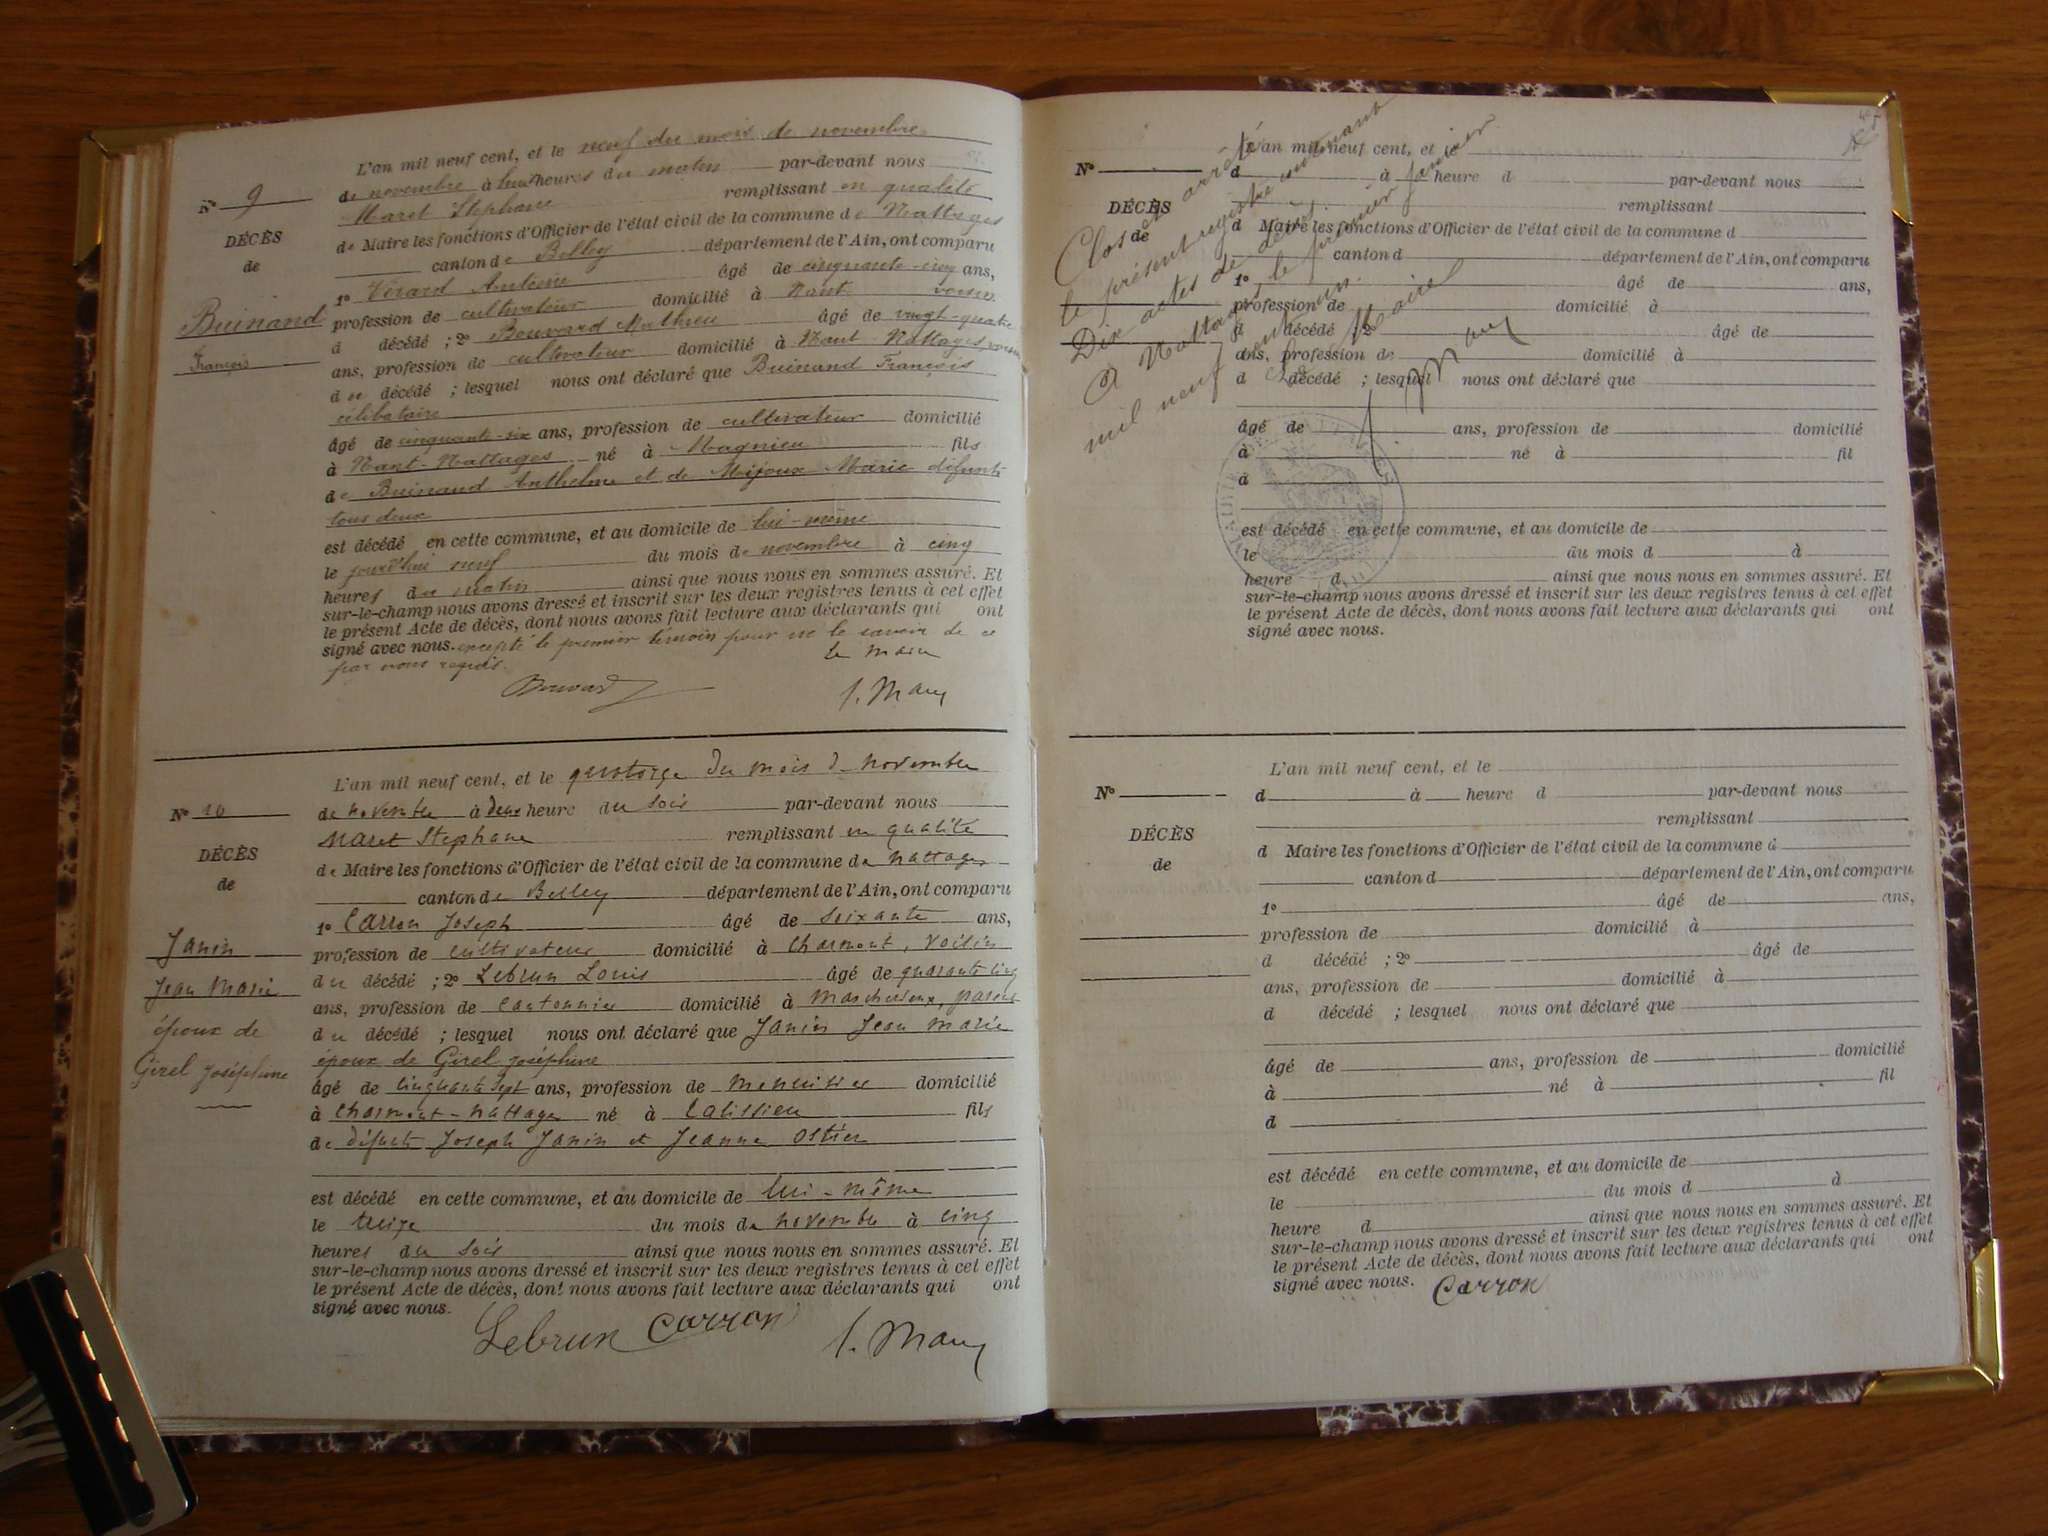 L'an mil neuf cent, et le neuf du mois de novembre
de novembre à huit heures du matin par-devant nous
Maret Stéphane remplissant en qualité
de Maire les fonctions d'Officier de l'état civil de la commune de Nattages
canton de Belley département de l'Ain, ont comparu
1º Vérard Antoine âgé de cinquante-cinq ans,
profession de cultivateur domicilié à Nant voisin
d décédé ; 2º Bouvard Mathieu âgé de vingt-quatre
ans, profession de cultivateur domicilié à Nant-Nattages, voisin
du décédé ; lesquel nous ont déclaré que Buinand François
célibataire
âgé de cinquante-six ans, profession de cultivateur domicilié
à Nant-Nattages né à Magnieu fils
de Buinand Anthelme et de Mijoux Marie défunts
tous deux
est décédé en cette commune, et au domicile de lui-même
le jourd'hui neuf du mois de novembre à cinq
heures du matin ainsi que nous nous en sommes assuré. Et
sur-le-champ nous avons dressé et inscrit sur les deux registres tenus à cet effet
le présent Acte de décès, dont nous avons fait lecture aux déclarants qui ont
signé avec nous. excepté le premier témoin pour ne le savoir de ce
par nous requis.
le maire
Bouvard
Nº 9
DÉCÈS
de
Buinand
François
L'an mil neuf cent, et le quatorze du mois d novembre
de novembre à deux heure du soir par-devant nous
Maret Stephane remplissant en qualité
de Maire les fonctions d'Officier de l'état civil de la commune de Nattages
canton de Belley département de l'Ain, ont comparu
1º Carron Joseph âgé de soixante ans,
profession de cultivateur domicilié à Charmont, voisin
du décédé ; 2º Lebrun Louis âgé de quarante cinq
ans, profession de cantonnier domicilié à parent
du décédé ; lesquel nous ont déclaré que Janin Jean Marie
époux de Girel Joséphine
âgé de cinquante sept ans, profession de menuisier domicilié
à Charmont-Nattages né à Calissieu fils
de défunts Joseph Janin et Jeanne Ostier
est décédé en cette commune, et au domicile de lui-même
le treize du mois de novembre à cinq
heures du soir ainsi que nous nous en sommes assuré. Et
sur-le-champ nous avons dressé et inscrit sur les deux registres tenus à cet effet
le présent Acte de décès, dont nous avons fait lecture aux déclarants qui ont
signé avec nous.
Lebrun Carron
Nº 10
DÉCÈS
de
Janin
Jean Marie
époux de
Girel Joséphine
Clos et arrêté
le présent registre contenant
Dix actes de décès
A Nattages le premier janvier
mil neuf cent un.
Le Maire
Nº
DÉCÈS
de
L'an mil neuf cent, et le
d à heure d par-devant nous
remplissant
d Maire les fonctions d'Officier de l'état civil de la commune d
canton d département de l'Ain, ont comparu
1º âgé de ans,
profession de domicilié à
d décédé ; 2º âgé de
ans, profession de domicilié à
d décédé ; lesquel nous ont déclaré que
âgé de ans, profession de domicilié
à né à fil
d
est décédé en cette commune, et au domicile de
le du mois d à
heure d ainsi que nous nous en sommes assuré. Et
sur-le-champ nous avons dressé et inscrit sur les deux registres tenus à cet effet
le présent Acte de décès, dont nous avons fait lecture aux déclarants qui ont
signé avec nous.
Nº
DÉCÈS
de
L'an mil neuf cent, et le
d à heure d par-devant nous
remplissant
d Maire les fonctions d'Officier de l'état civil de la commune d
canton d département de l'Ain, ont comparu
1º âgé de ans,
profession de domicilié à
d décédé ; 2º âgé de
ans, profession de domicilié à
d décédé ; lesquel nous ont déclaré que
âgé de ans, profession de domicilié
à né à fil
d
est décédé en cette commune, et au domicile de
le du mois d à
heure d ainsi que nous nous en sommes assuré. Et
sur-le-champ nous avons dressé et inscrit sur les deux registres tenus à cet effet
le présent Acte de décès, dont nous avons fait lecture aux déclarants qui ont
signé avec nous. Carron